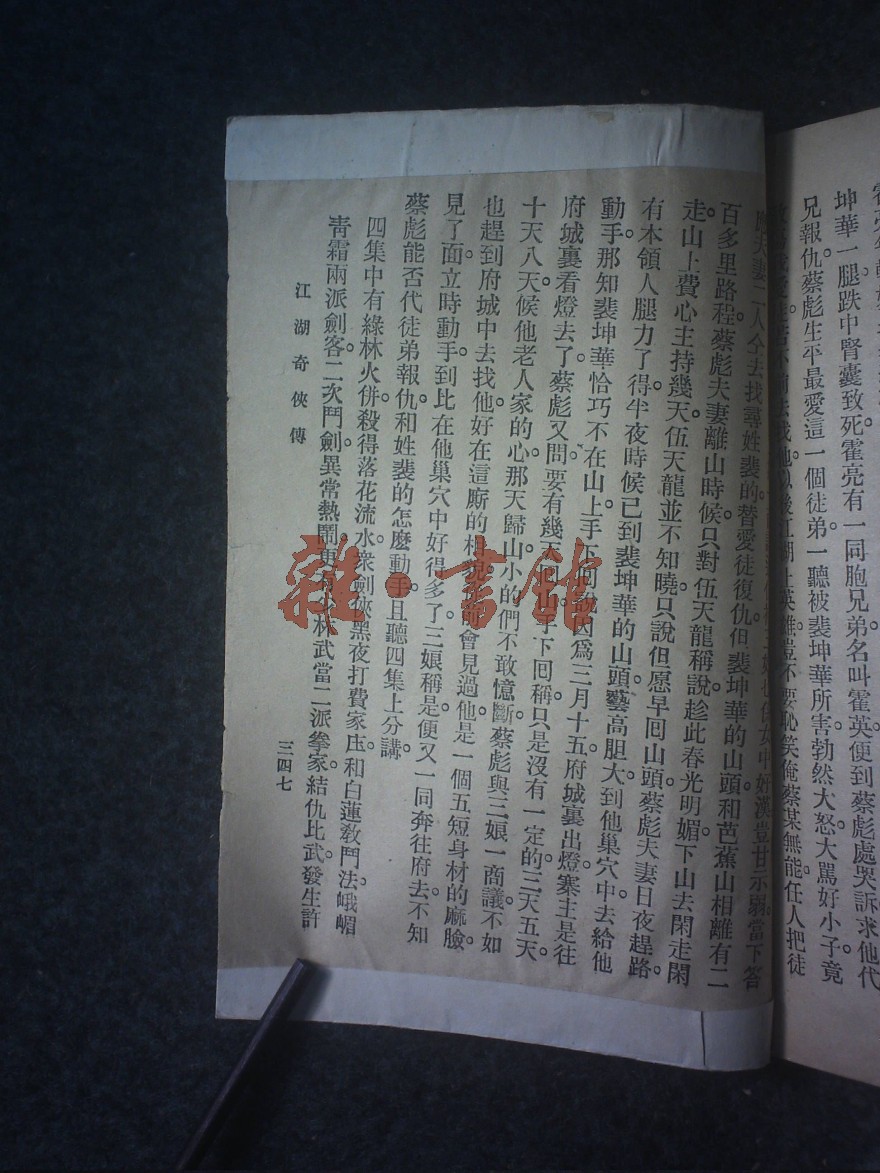 坤華一腿跌中腎囊致死。霍亮有一同胞兄弟名叫霍英便到蔡彪處哭訴求他代
兄報仇。蔡彪生平最愛這一個徒弟一聽被裴坤華所害勃然大怒大罵好小子竟
後江湖上英雄豈不要恥笑俺蔡某無能任人把徒
女中好漢豈甘示弱。當下答
夫妻二人仝去找尋姓裴的。替愛徒復仇但裴坤華的山頭和芭蕉山相離有二
百多里路程。蔡彪夫妻離山時候只對伍天龍稱說趁此春光明媚下山去閑走閑
走。山上費心主持幾天。伍天龍並不知曉。只說但愿早囘山頭。蔡彪夫妻日夜趕路。
有本領人腿力了得。半夜時候已到裴坤華的山頭。藝高胆大到他巢穴中去給他
動手那知裴坤華恰巧不在山上。手下囘說。因爲三月十五府城裏出燈。寨主是往
府城裏看燈去了。蔡彪又問。要有幾天囘山。手下囘稱。只是沒有一定的。三天五天。
十天八天。候他老人家的心那天歸山。小的們不敢憶斷。蔡彪與三娘一商議。不如
也趕到府城中去找他。好在這廝的相貌會見過。他是一個五短身材的麻臉。
見了面立時動手。到比在他巢穴中好得多了。三娘稱是。便又一同奔往府去。不知
蔡彪能否代徒弟報仇。和姓裴的怎麽動手。且聽四集上分講。
四集中有綠林火併。殺得落花流水。衆劍俠黑夜打費家庒。和白蓮教鬥法。峨嵋
青霜兩派劍客。二次鬥劍。異常熱鬧。更有少林武當二派拳家結仇比武。發生許
江湖奇俠傳
三四七
雜·書館